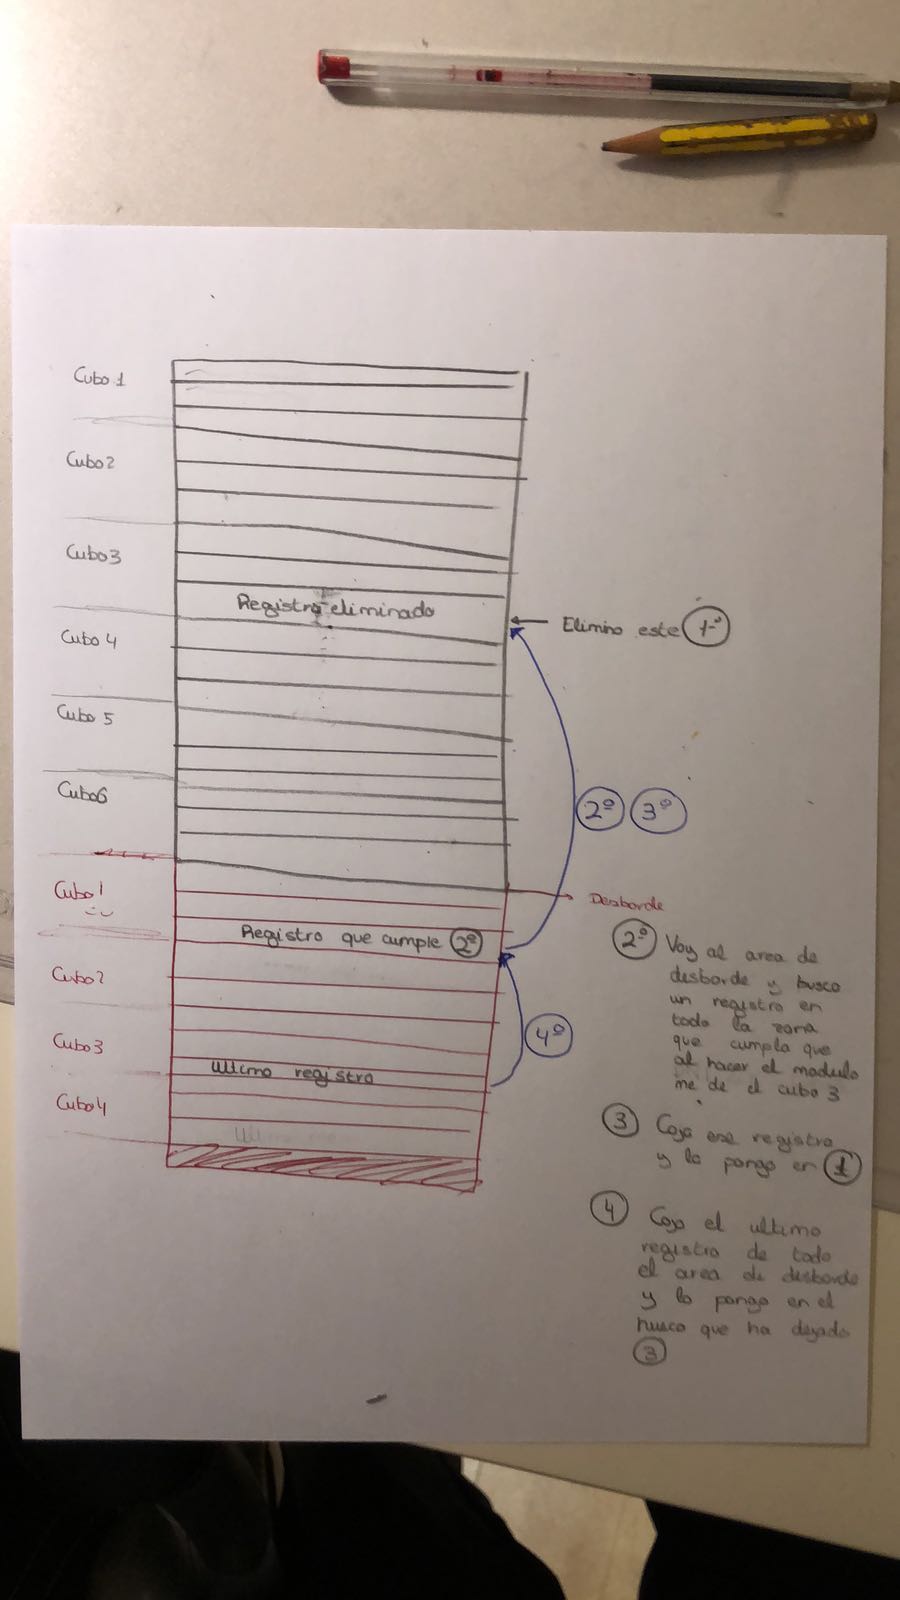 Cubo 1
Cubo 2
Cubo 3
Registro eliminado
Elimino este 1º
Cubo 4
Cubo 5
Cubo 6
2º 3º
Cubo 1
Desborde
Registro que cumple 2º
Cubo 2
4º
Cubo 3
Ultimo registro
Cubo 4
2º Voy al area de
desborde y busco
un registro en
toda la zona
que cumpla que
al hacer el modulo
me de el cubo 3
3 Cojo ese registro
y lo pongo en 1
4 Cojo el ultimo
registro de todo
el area de desborde
y lo pongo en el
hueco que ha dejado
3